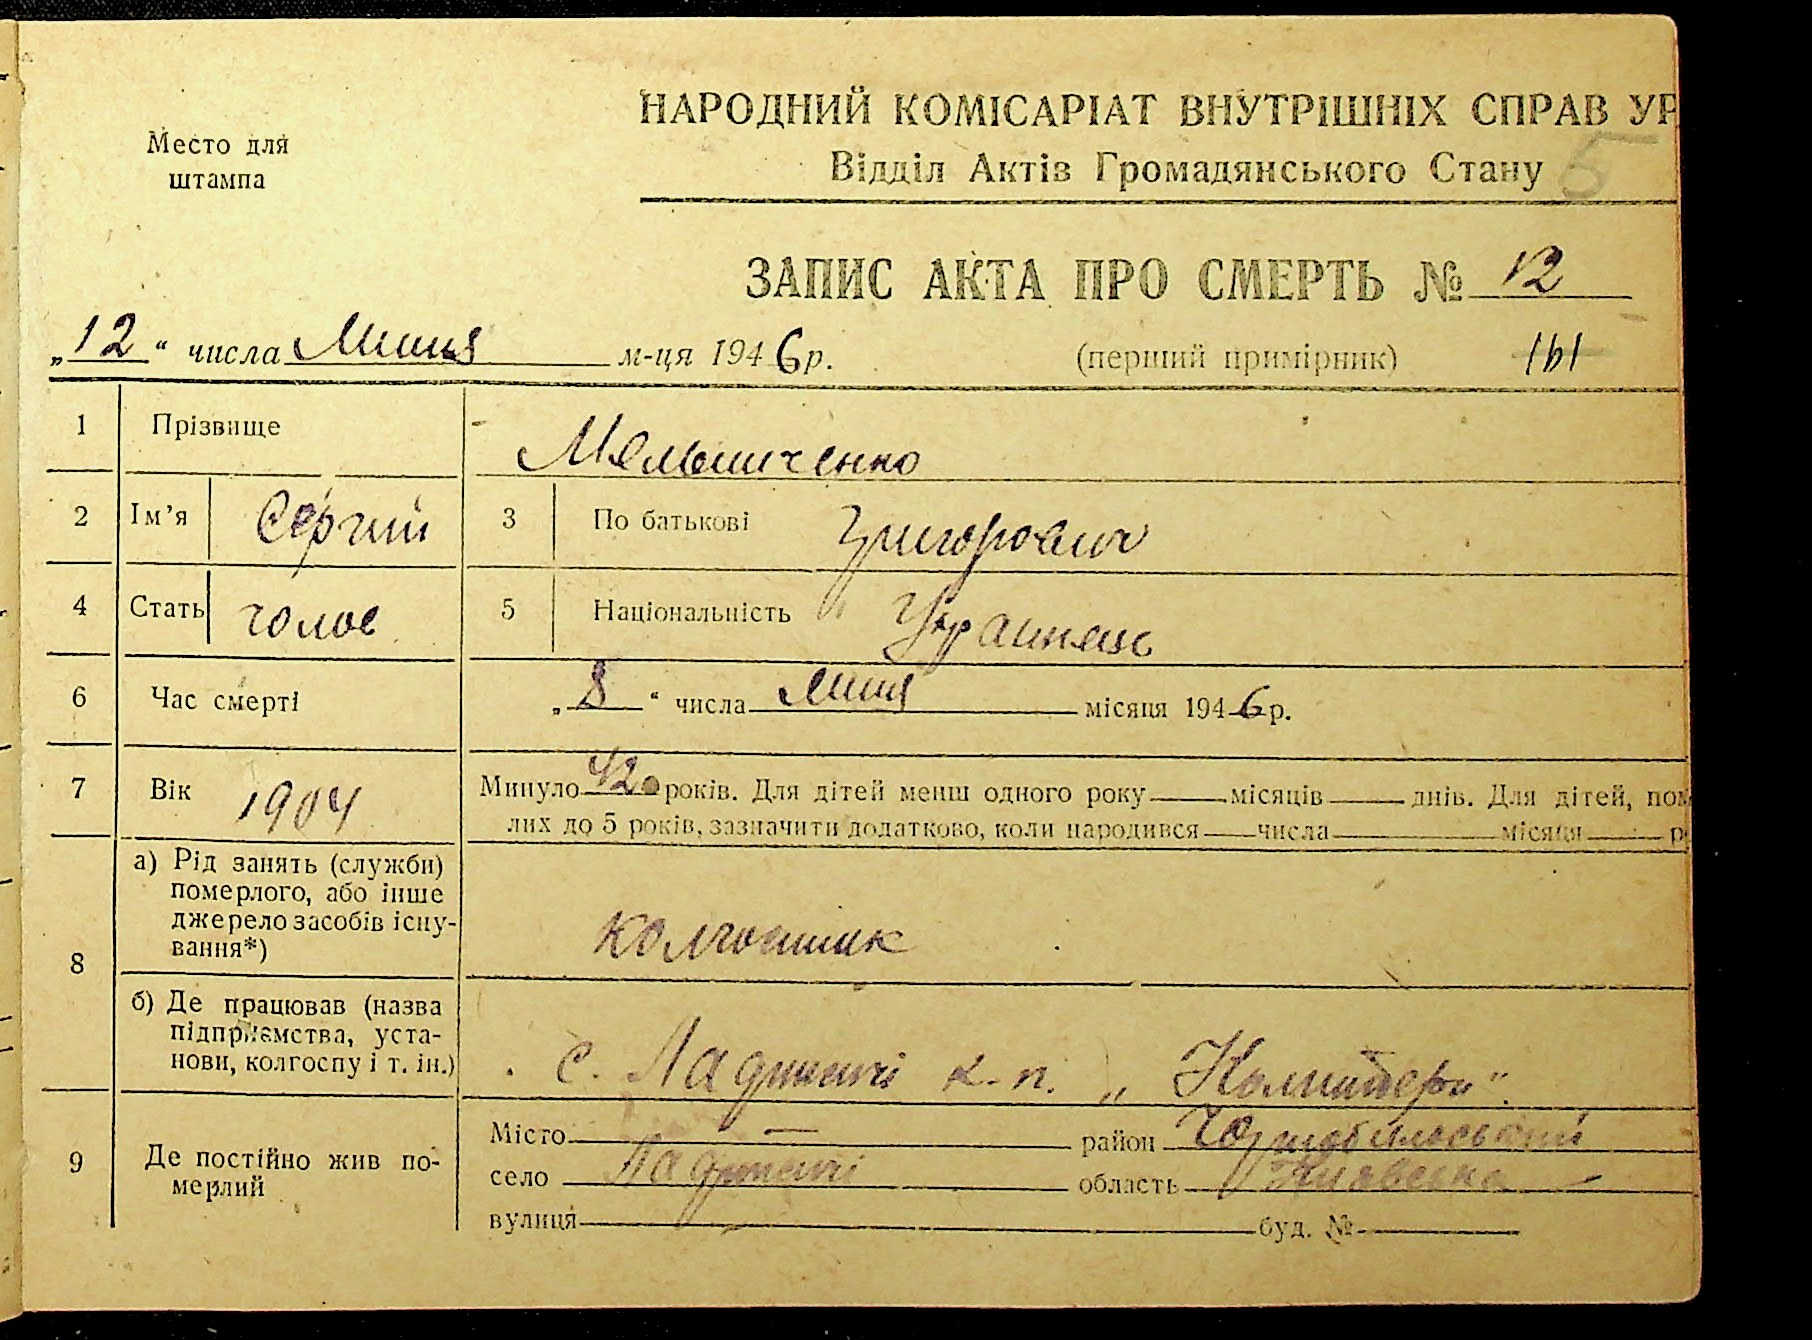 Место для
штампа
НАРОДНИЙ КОМІСАРІАТ ВНУТРІШНІХ СПРАВ УР
Відділ Актів Громадянського Стану
5
ЗАПИС АКТА ПРО СМЕРТЬ № 12
„12“ числа Липня м-ця 1946р. (перший примірник) 161
1 Прізвище Мельниченко
2 Ім'я Сергий 3 По батькові Григорович
4 Стать чолов 5 Національність Українец
6 Час смерті „8“ числа липня місяця 1946р.
7 Вік 1904 Минуло 42 років. Для дітей менш одного року місяців днів. Для дітей, пом
лих до 5 років, зазначити додатково, коли народився числа місяця р
8 а) Рід занять (служби)
померлого, або інше
джерело засобів існу-
вання*)
колгоспник
б) Де працював (назва
підприємства, уста-
нови, колгоспу і т. ін.)
с. Ладижичі к-п. „Комінтерн"
9 Де постійно жив по-
мерлий
Місто — район Чорнобильский
село Ладижичі область Киевска
вулиця буд. №